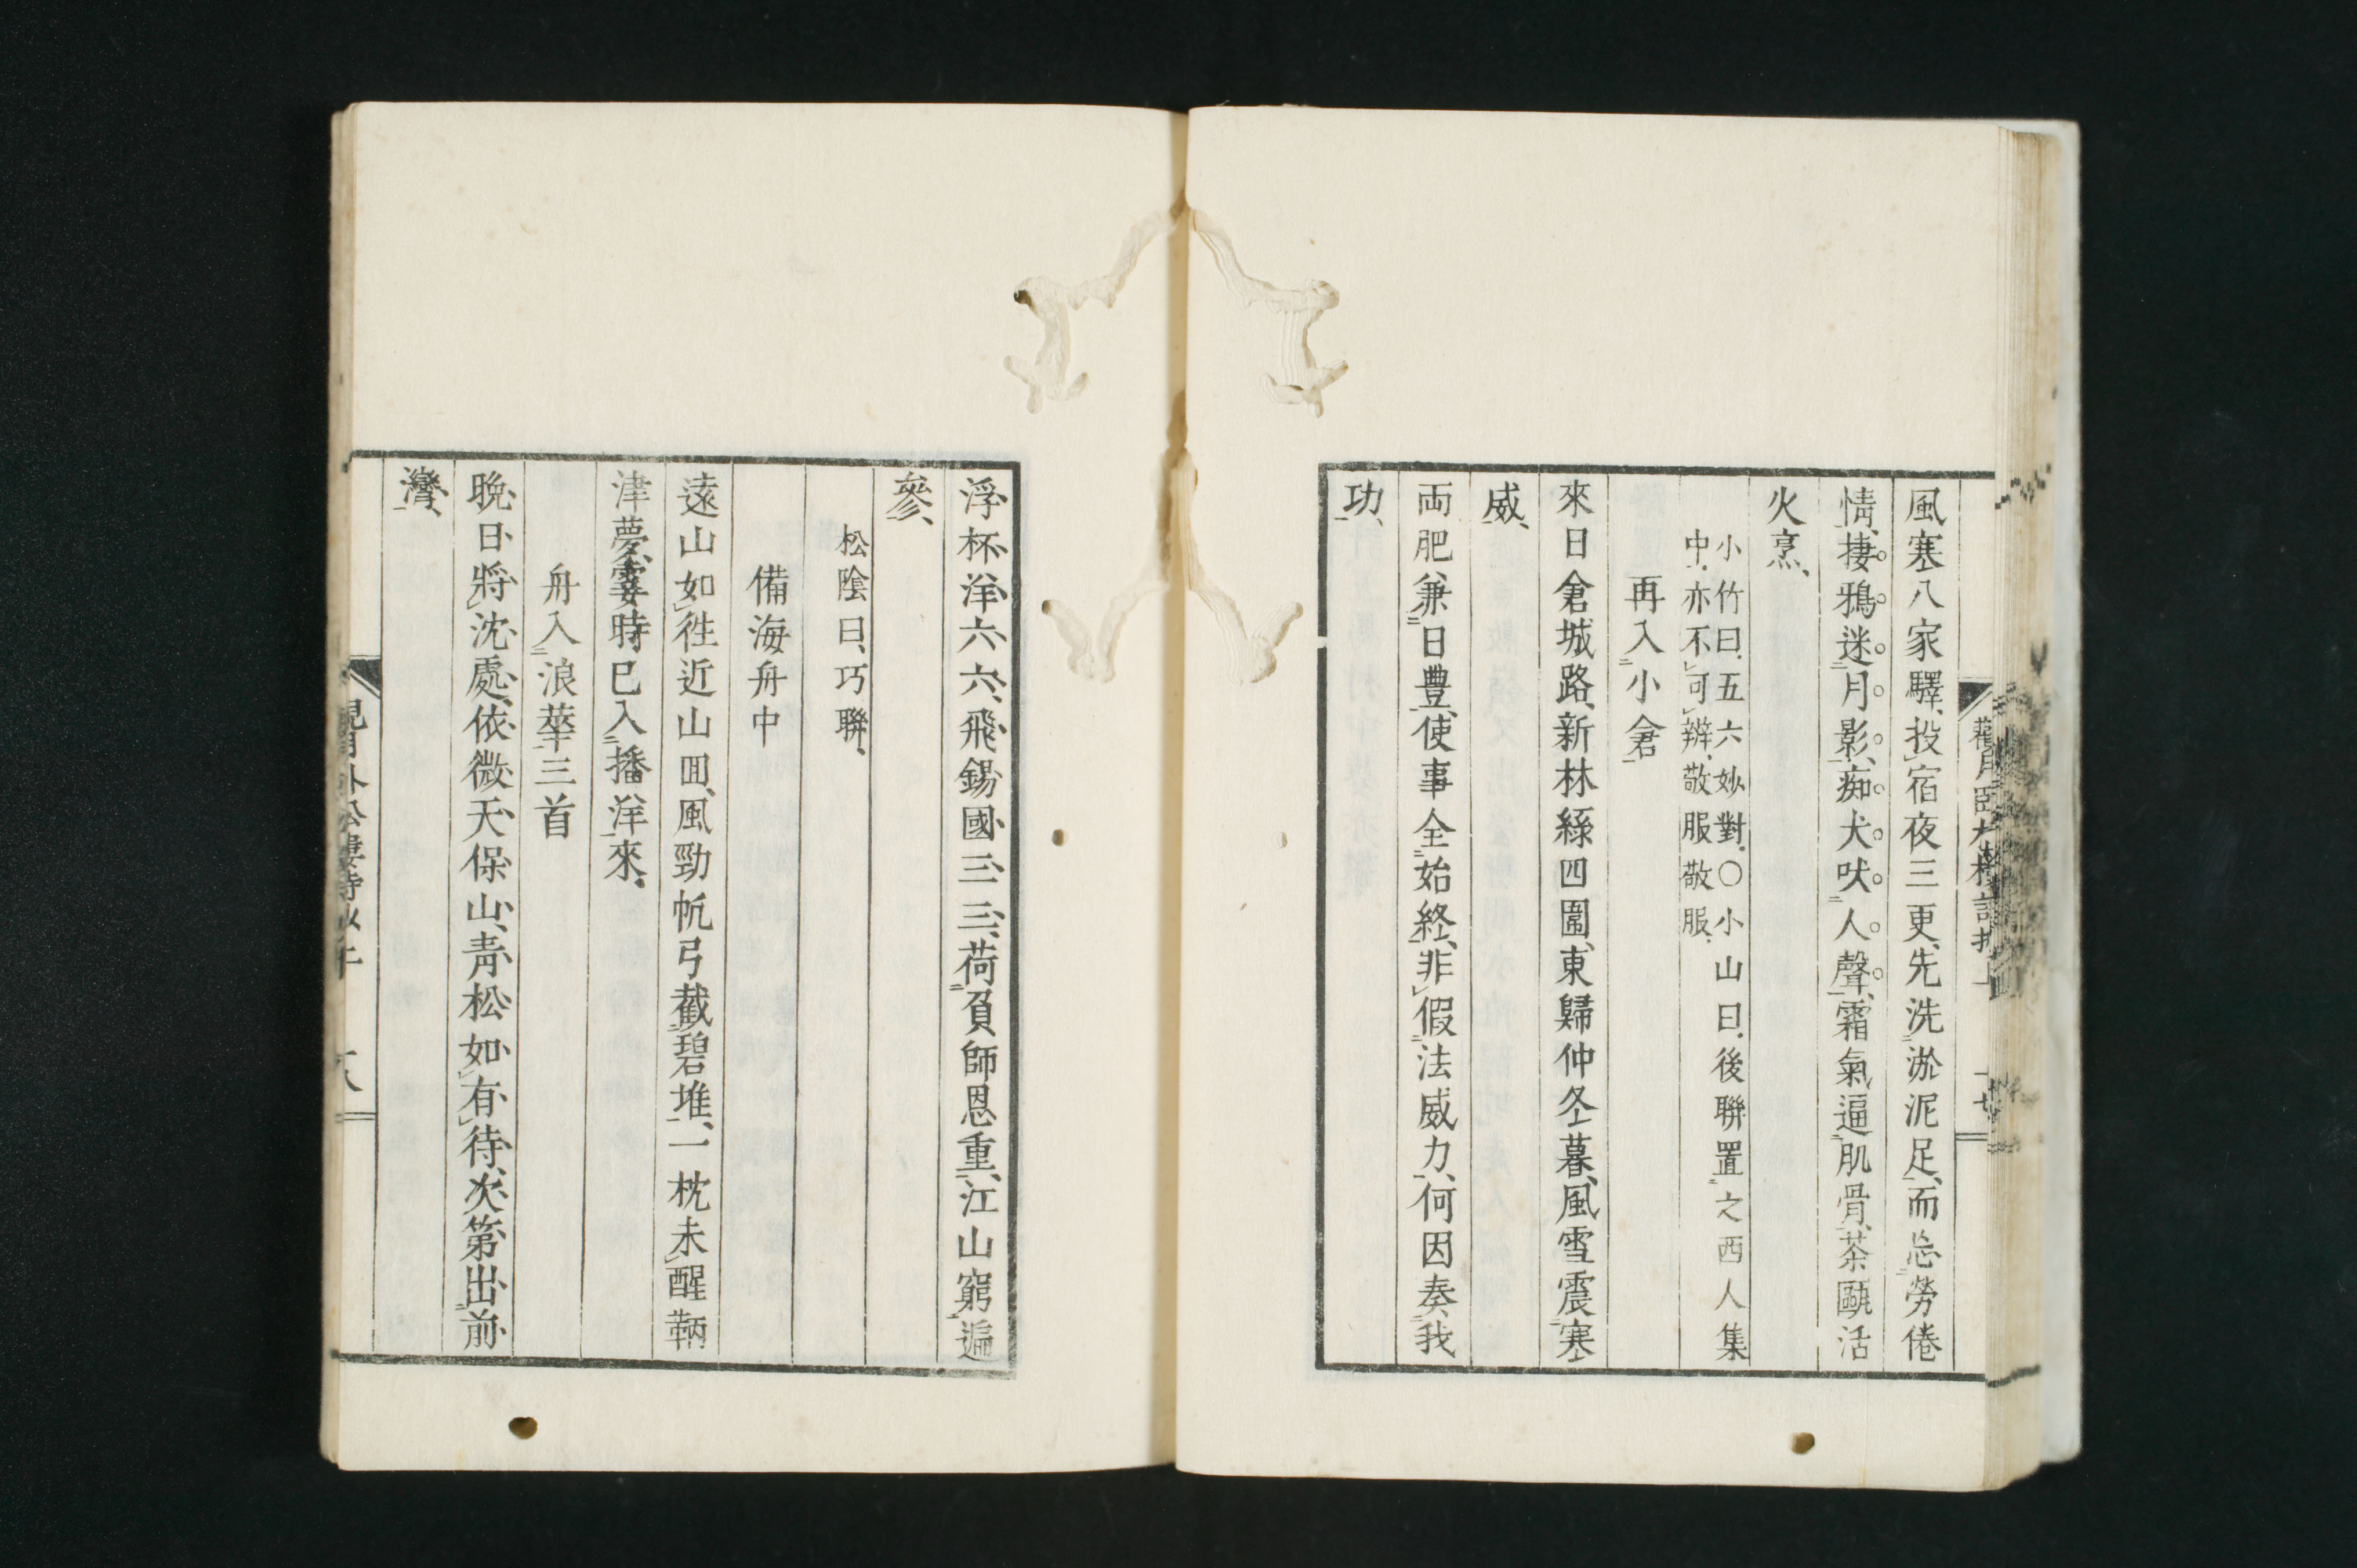 風塞八家驛、投宿夜三更、先洗淤泥足、而忘勞倦
情、捿鴉迷月影、痴犬吠人聲、霜氣逼肌骨、茶甌活
火烹、
小竹曰、五六妙對、〇小山曰、後聯置之西人集
中、亦不可辨、敬服敬服、
再入小倉
來日倉城路、新林綠四圍、東歸仲冬暮、風雪震寒
威、
両肥兼日豊、使事全始終、非假法威力、何因奏我
功、
浮杯洋六六、飛錫國三三、荷負師恩重、江山窮遍
參、
松陰曰、巧聯、
備海舟中
遠山如徃近山囬、風勁帆弓截碧堆、一枕未醒鞆
津夢、霎時已入播洋來、
舟入浪華三首
晩日將沈處、依微天保山、青松如有待、次第出前
灣、